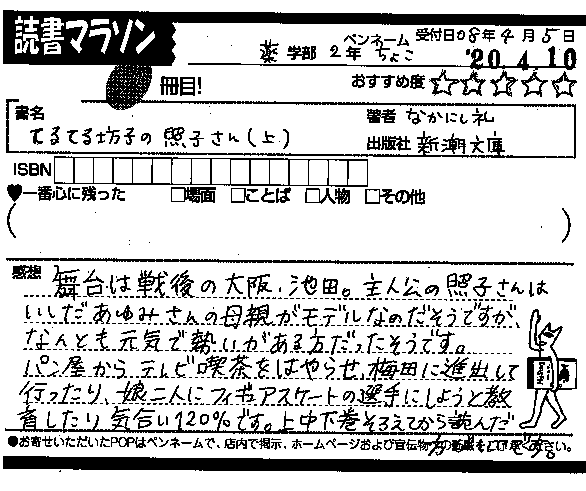 読書マラソン
冊目!
薬 学部 2年 ペンネーム ちょこ
受付日08年4月5日
'20.4.10
おすすめ度 ☆☆☆☆☆
書名
てるてる坊子の照子さん(上)
著者 なかにし礼
出版社 新潮文庫
ISBN
♥一番心に残った □場面 □ことば □人物 □その他
( )
感想 舞台は戦後の大阪、池田。主人公の照子さんは
いしだあゆみさんの母親がモデルなのだそうですが、
なんとも元気で勢いがある方だったそうです。
パン屋からテレビ喫茶をはやらせ、梅田に進出して
行ったり、娘二人にフィギュアスケートの選手にしようと教
育したり気合い120%です。上中下巻そろえてから読んだ
●お寄せいただいたPOPはペンネームで、店内で掲示、ホームページおよび宣伝物